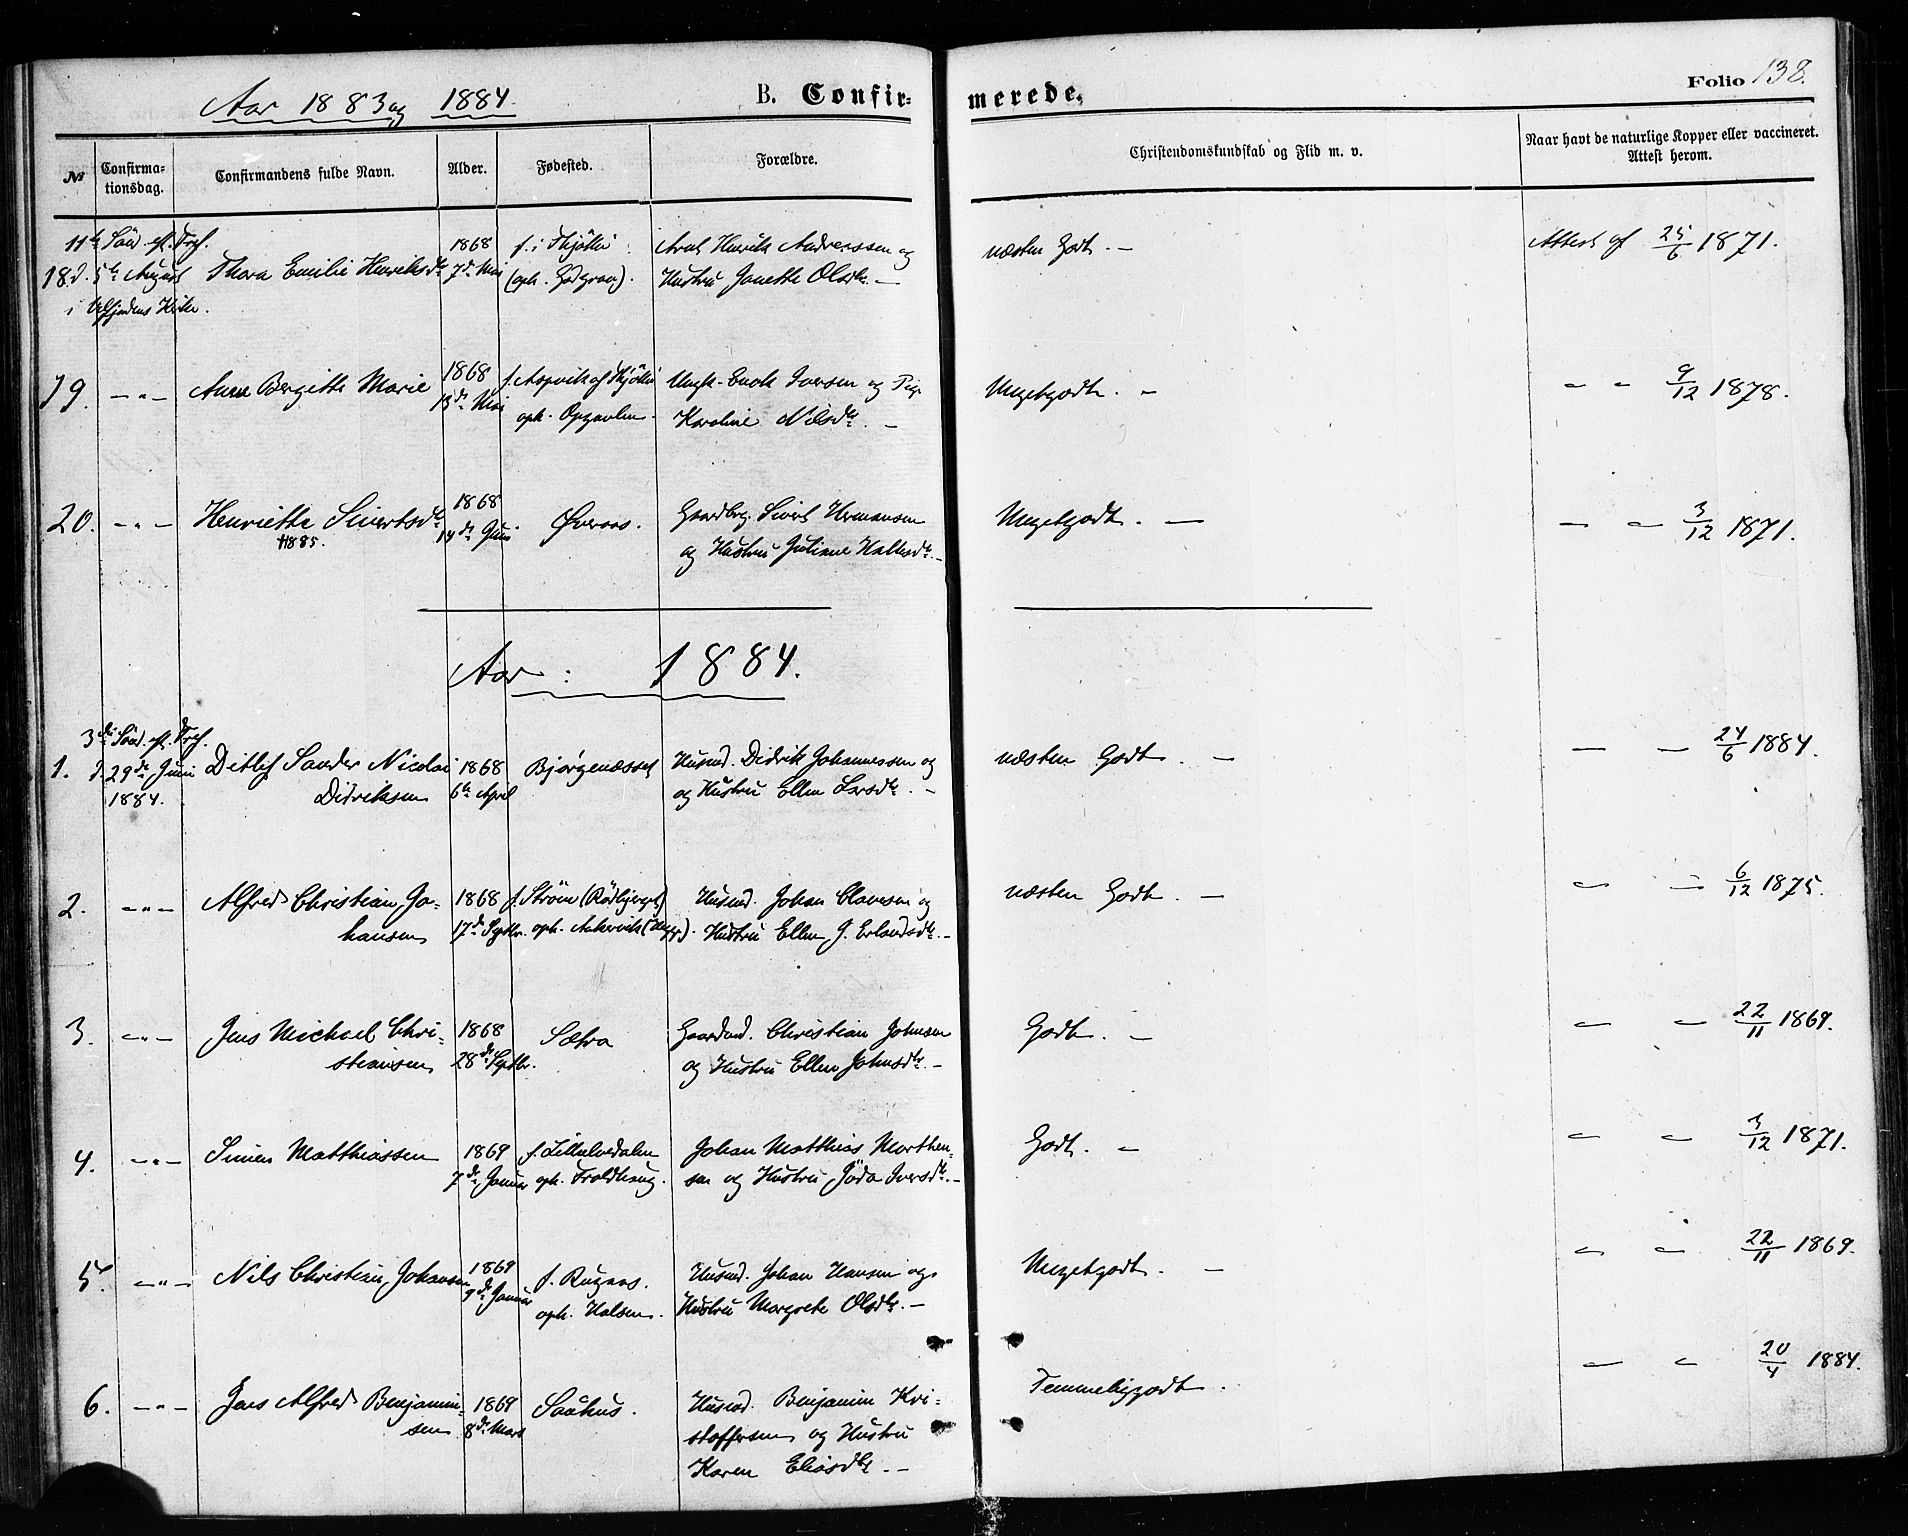 Aar 1883 og 1884.
B. Confir-
merede.
Folio 138.
№
Confirma-
tionsdag.
Confirmandens fulde Navn.
Alder.
Fødested.
Forældre.
Christendomskundskab og Flid m. v.
Naar havt de naturlige Kopper eller vaccineret.
Attest herom.
11te Sönd. eft. Tref.
18. d. 5te August
i Velfjordens Kirke.
Thora Emilie Henriksdtr
1868
7de Mai
f. i Thjöttö
(oph. )
Arnt Henrik Andreassen og
Hustru Janette Olsdtr. —
næsten Godt. —
Attest af 25/6 1871.
19. — " —
Anne Bergitte Marie
1868
13de Mai
f. Aspvik af Thjöttö
oph. Opgavlen.
Ungk. Enok Iversen og Pige
Karoline Nilsdtr. —
Megetgodt. —
— — 9/12 1878.
20. — " —
Henriette Sivertsdtr
†1885.
1868
14de Juni
Øveraas.
Gaardbrg. Sivert Hermansen
og Hustru Juliane Hallesdtr. —
Megetgodt. —
— — 3/12 1871.
Aar : 1884.
3die Sönd. eft. Tref.
1. d. 29de Juni
1884.
Ditlef Sander Nicolai
Didriksen
1868
6te April
Bjørgenæsset
Husmd. Didrik Johannessen og
og Hustru Ellen Larsdtr. —
næsten Godt. —
— — 24/6 1884.
2. — " —
Alfred Christian Jo-
hansen
1868
17de Septbr.
f. Ström (Rödbjerget)
oph. Aakervik (Vegg).
Husmd. Johan Olavesen og
Hustru Ellen J. Erlandsdtr. —
næsten Godt. —
— — 6/12 1875.
3. — " —
Jens Michael Chri-
stiansen
1868
28de Septbr.
Sætra
Gaardmd. Christian Johnsen
og Hustru Ellen Johnsdtr. —
Godt. —
— — 22/11 1869.
4. — " —
Simen Matthiassen
1869
7de Januar
f. Lillelvedalen
oph. Troldhaug.
Johan Matthias Morthen-
sen og Hustru Jöda Iversdtr. —
Godt. —
— — 3/12 1871.
5. — " —
Nils Christian Johansen
1869
9de Januar
f. Rugaas.
oph. Halsen.
Husmd. Johan Hansen og
Hustru Margrete Olsdtr. —
Megetgodt. —
— — 22/11 1869.
6. — " —
Jens Alfred Benjamin-
sen
1869
8de Mars
Sauhus.
Husmd. Benjamin Kri-
stoffersen og Hustru
Karen Eliasdtr. —
Temmeliggodt.
— — 20/4 1884.